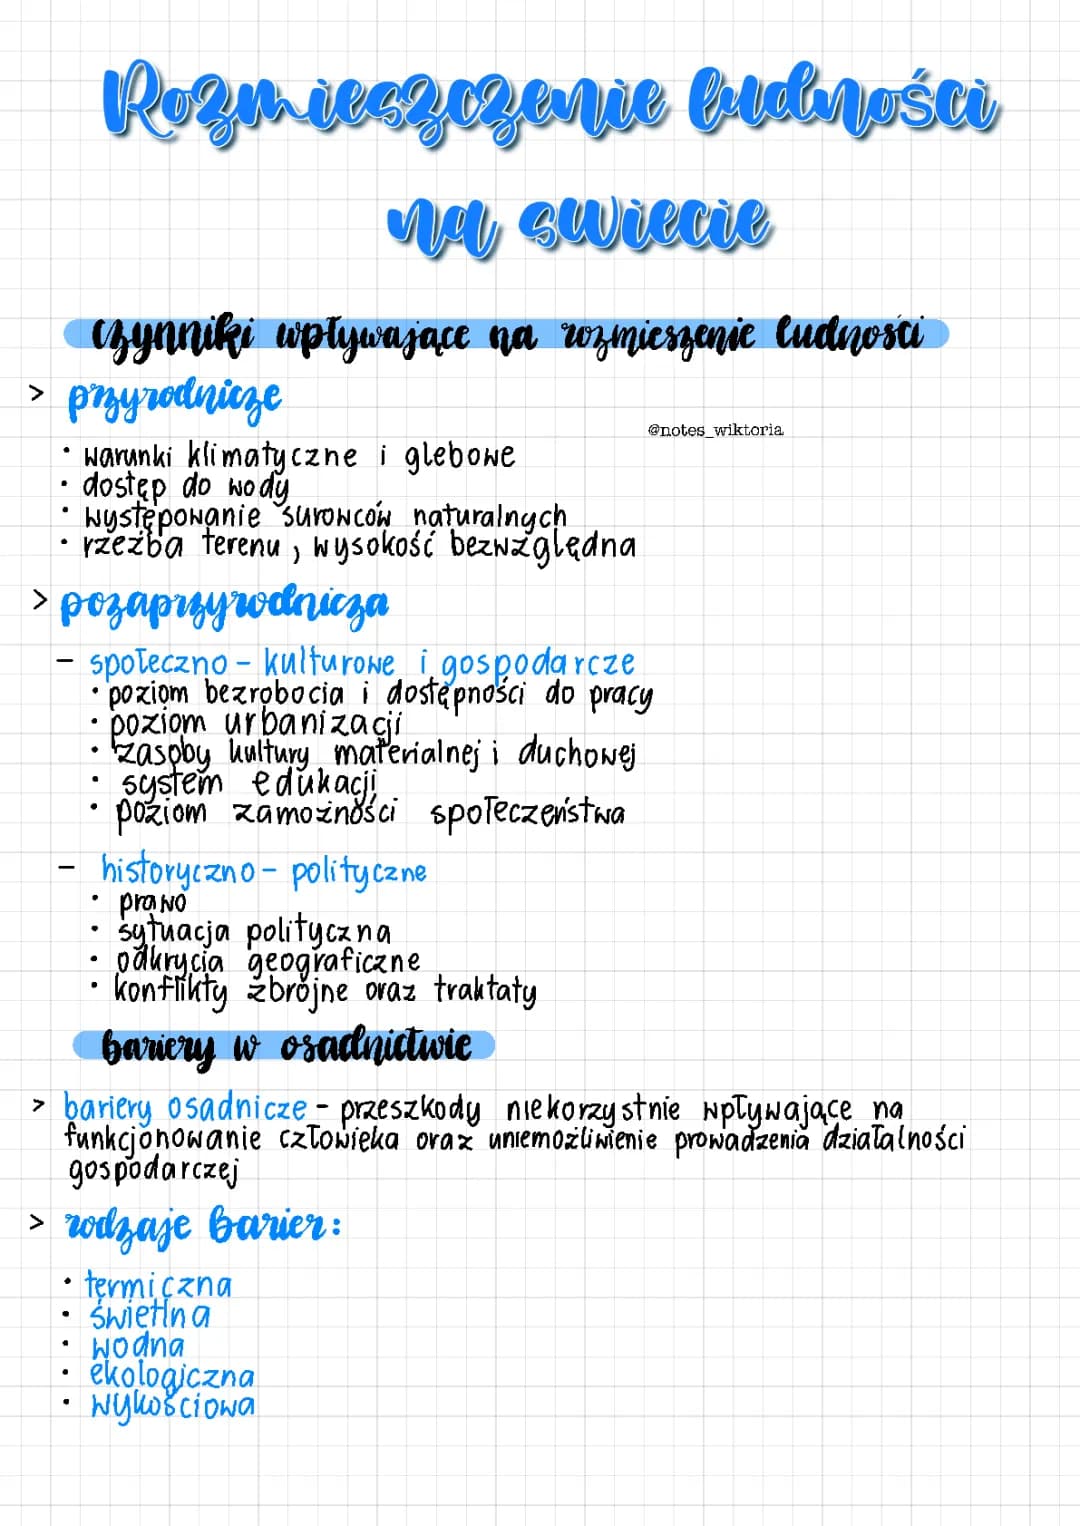 Rozmieszczenie ludności
na swiecie
czynniki wpływające na rozmieszenie ludności
> przyrodnicze
@notes_wiktoria
• warunki klimatyczne i glebowe
• dostęp do wody
• występowanie surowców naturalnych
• rzeźba terenu, wysokość bezwzględna
> pozaprzyrodnicza
- społeczno - kulturowe i gospodarcze
• poziom bezrobocia i dostępności do pracy
• poziom urbanizacji
• zasoby kultury materialnej i duchowej
• system edukacji
• poziom zamożności społeczeństwa
- historyczno - polityczne
• prawo
• sytuacja polityczna
• odkrycia geograficzne
• konflikty zbrojne oraz traktaty
bariery w osadnictwie
> bariery osadnicze - przeszkody niekorzystnie wpływające na
funkcjonowanie człowieka oraz uniemożliwienie prowadzenia działalności
gospodarczej
> rodzaje barier:
• termiczna
• świetlna
• wodna
• ekologiczna
• wykościowa